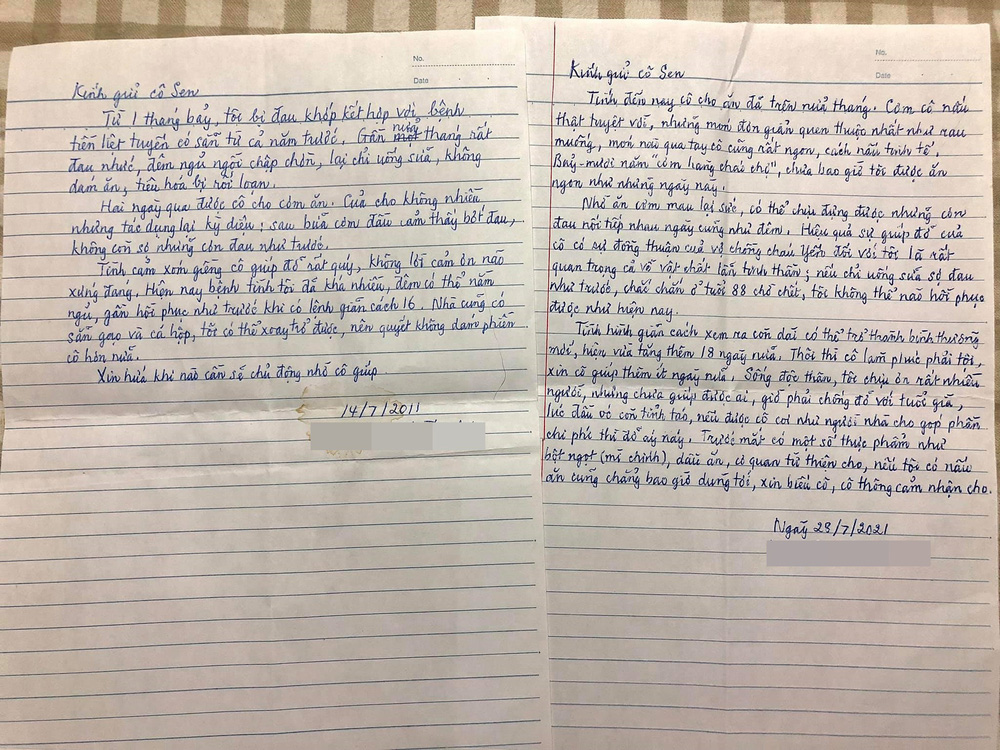 No.
Date
Kính gửi cô Sen
Từ 1 tháng bảy, tôi bị đau khớp kết hợp với bệnh
tiền liệt tuyến có sẵn từ cả năm trước. Gần nửa một tháng rất
đau nhức, đêm ngủ ngồi chập chờn, lại chỉ uống sữa, không
dám ăn, tiêu hóa bị rối loạn.
Hai ngày qua được cô cho cơm ăn. Của cho không nhiều
nhưng tác dụng lại kỳ diệu; sau bữa cơm đầu cảm thấy bớt đau,
không còn sợ những cơn đau như trước.
Tình cảm xóm giềng cô giúp đỡ rất quý, không lời cảm ơn nào
xứng đáng. Hiện nay bệnh tình tôi đã khá nhiều, đêm có thể nằm
ngủ, gần hồi phục như trước khi có lệnh giãn cách 16. Nhà cũng có
sẵn gạo và cá hộp, tôi có thể xoay trở được, nên quyết không dám phiền
cô hơn nữa.
Xin hứa khi nào cần sẽ chủ động nhờ cô giúp.
14/7/2011
No.
Date
Kính gửi cô Sen
Tính đến nay cô cho ăn đã trên nửa tháng. Cơm cô nấu
thật tuyệt vời, nhưng món đơn giản quen thuộc nhất như rau
muống, món nào qua tay cô cũng rất ngon, cách nấu tinh tế.
Bảy-mươi năm "cơm hàng cháo chợ", chưa bao giờ tôi được ăn
ngon như những ngày này.
Nhờ ăn cơm mau lại sức, có thể chịu đựng được những cơn
đau nối tiếp nhau ngày cũng như đêm. Hiệu quả sự giúp đỡ của
cô có sự đồng thuận của vợ chồng cháu Yến đối với tôi là rất
quan trọng cả về vật chất lẫn tinh thần; nếu chỉ uống sữa sợ đau
như trước, chắc chắn ở tuổi 88 chờ chết, tôi không thể nào hồi phục
được như hiện nay.
Tình hình giãn cách xem ra còn dài có thể trở thành bình thường
mới, hiện vừa tăng thêm 18 ngày nữa. Thôi thì cô làm phúc phải tội,
xin cô giúp thêm ít ngày nữa. Sống độc thân, tôi chịu ơn rất nhiều
người, nhưng chưa giúp được ai, giờ phải chống đỡ với tuổi già,
lúc đầu óc còn tỉnh táo, nếu được cô coi như người nhà cho góp phần
chi phí thì đỡ áy náy. Trước mắt có một số thực phẩm như
bột ngọt (mì chính), dầu ăn, cơ quan từ thiện cho, nếu tôi có nấu
ăn cũng chẳng bao giờ dùng tới, xin biếu cô, cô thông cảm nhận cho.
Ngày 29/7/2021